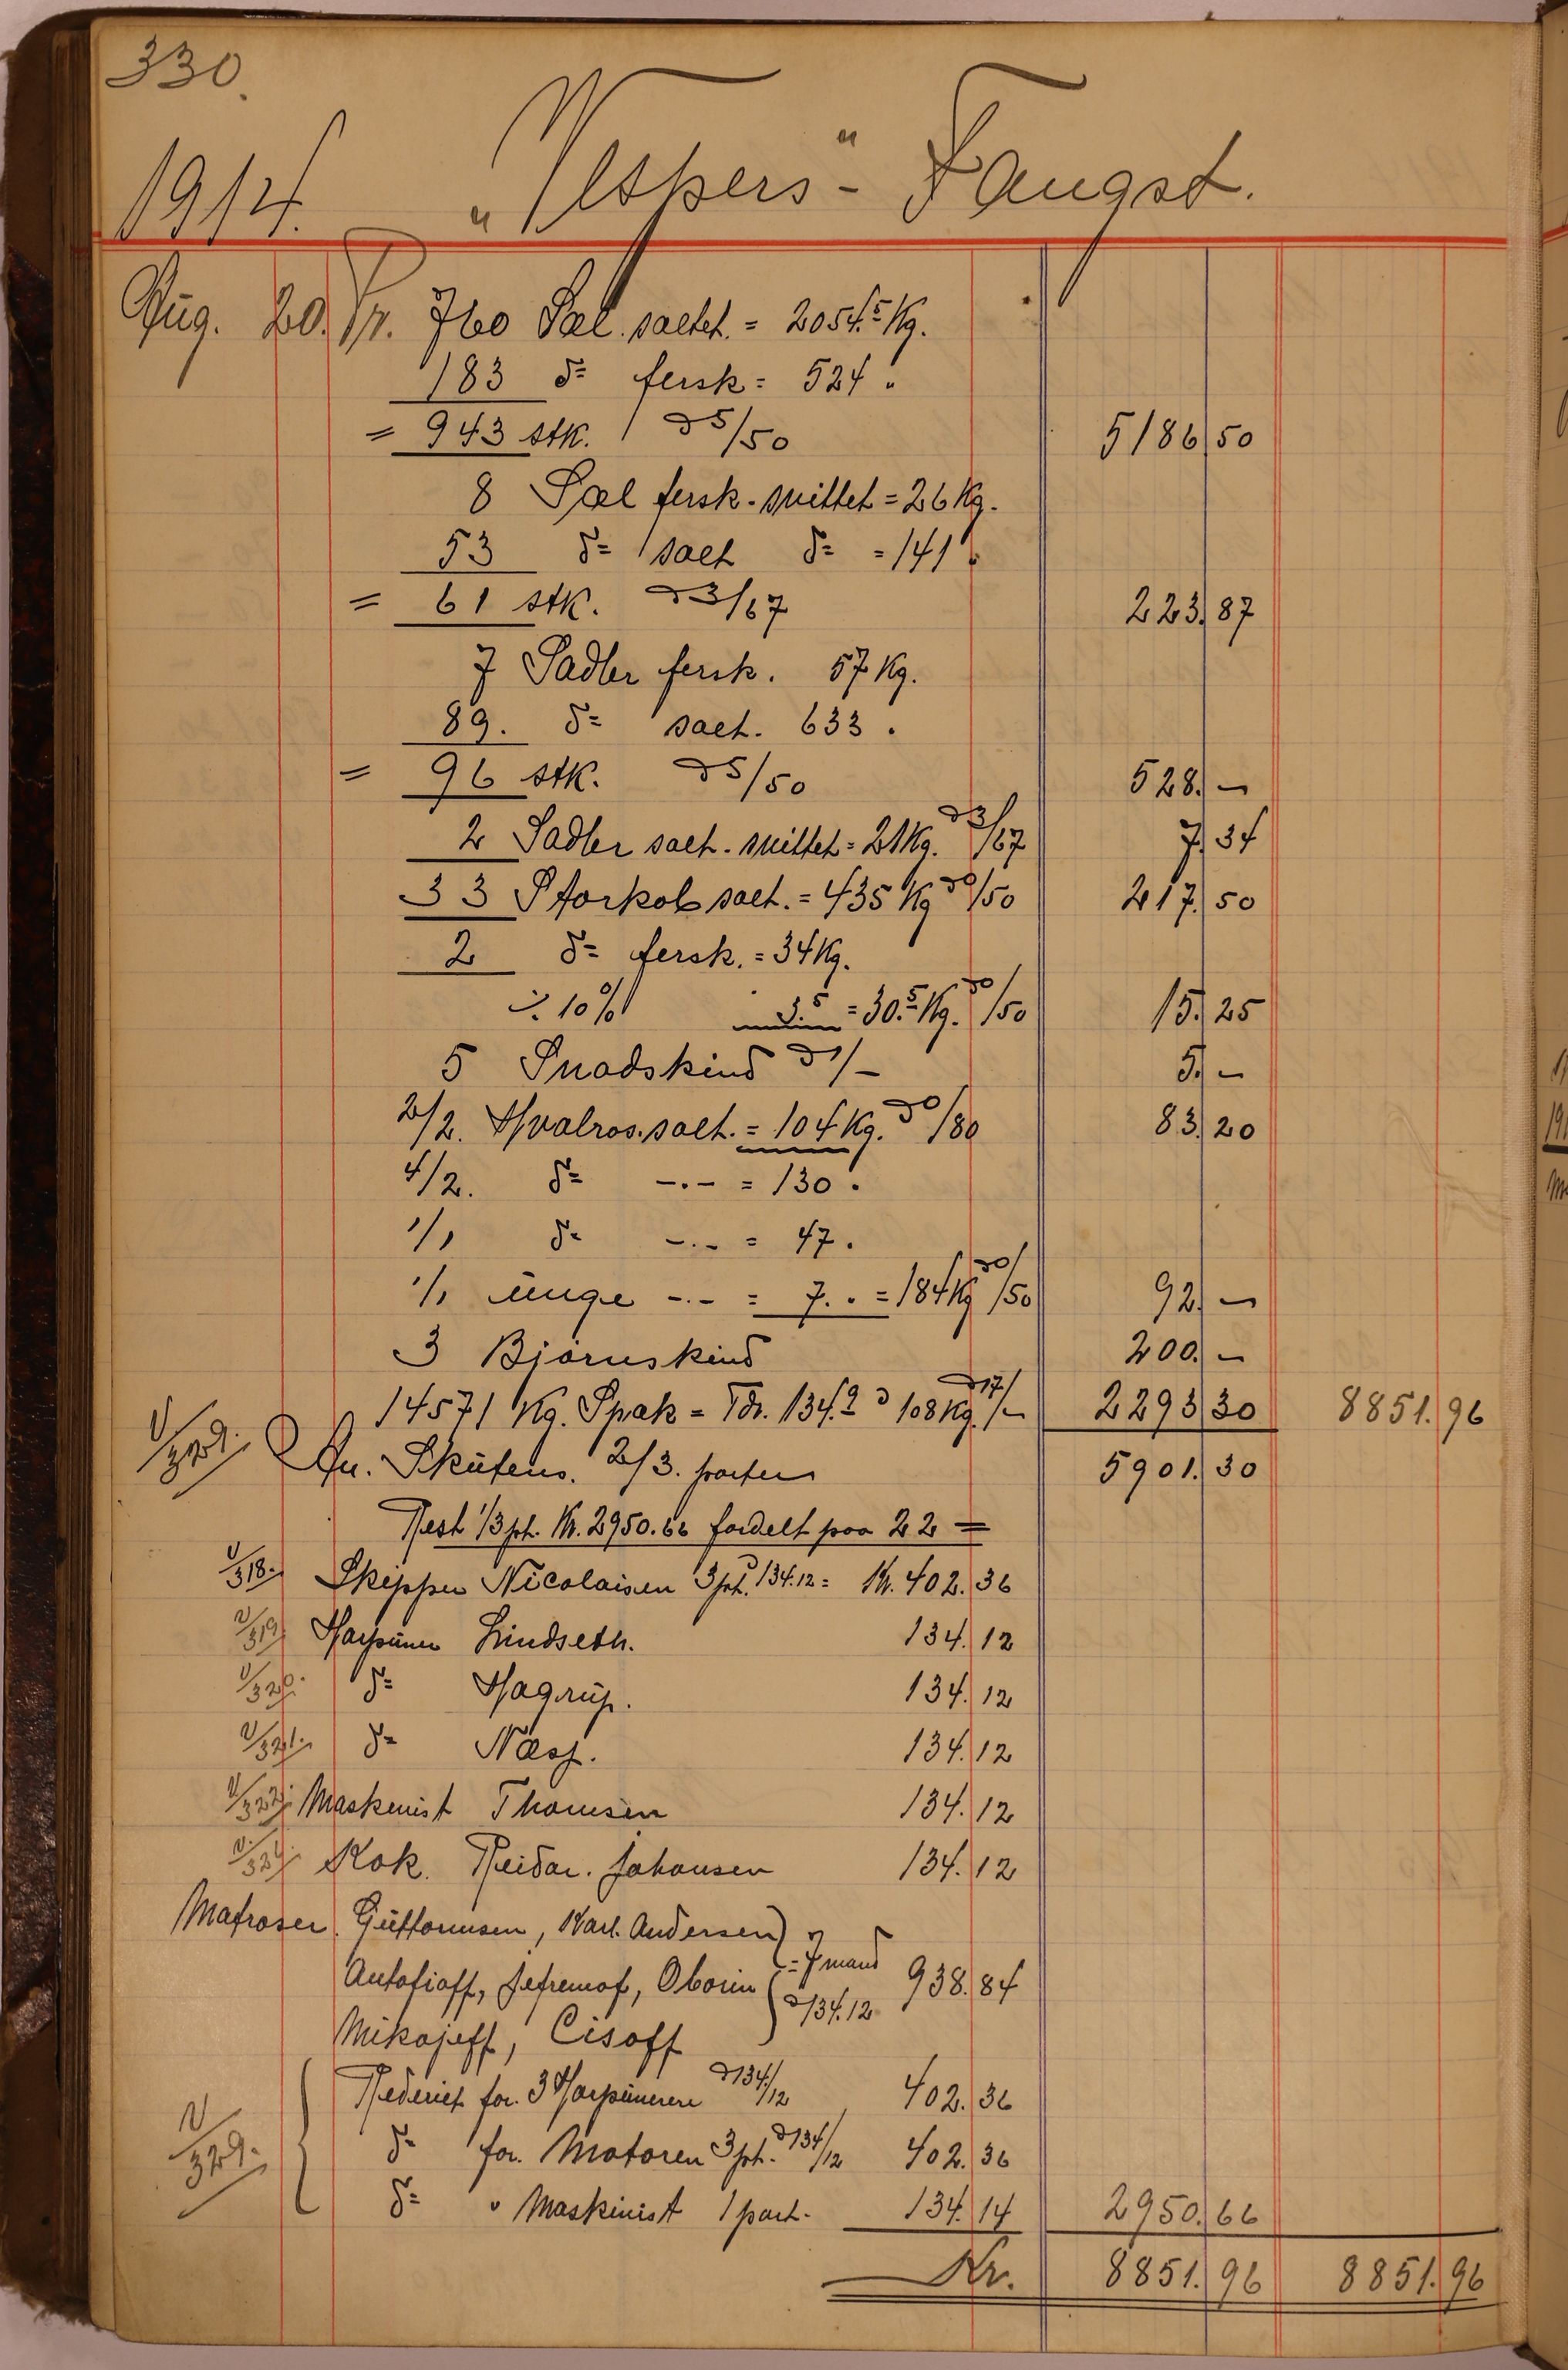 330.
1914. "Veskers"- Fangst.
Aug. 20. Pr. 760 Sæl. saltet. = 2054.5 Kg.
183 do fersk = 524 "
= 943 stk. à 5/50 5186 50
8 Sæl fersk. snittet = 26 Kg.
53 do salt do = 141 "
= 61 stk. à 3/67 223. 87
7 Sadler fersk. 57 Kg.
89. do salt. 633 "
= 96 stk. à 5/50 528. –
2 Sadler salt. snittet = 21 Kg. à 3/67 7. 34
33 Storkob salt. = 435 Kg à 0/50 217. 50
2 do fersk. = 34 Kg.
÷ 10% 3.5 = 30.5 Kg. à 0/50 15. 25
5 Snadskind à 1/– 5. –
2/2. Hvalros. salt. = 104 Kg. à 0/80 83. 20
4/2. do –.– = 130 "
1/1 do –.– = 47 "
1/1 unge –.– = 7. " = 184 Kg à 0/50 92. –
3 Bjørnskind 200. –
14571 Kg. Spæk = Tdr. 134.9 à 108 Kg. à 17/– 2293 30 8851. 96
V/329. An. Skutens. 2/3. parter 5901. 30
Rest 1/3 pt. Kr. 2950.66 fordelt paa 22 =
V/318. Skipper Nicolaisen 3 pt. à 134.12 = Kr. 402. 36
V/319 Harpuner Lindseth. 134. 12
V/320. do Hagrup. 134. 12
V/321. do Næss. 134. 12
V/322. Maskinist Thomsen 134. 12
V/324. Kok. Reidar. Johansen 134. 12
Matroser. Guttormsen, Karl. Andersen
Antofioff, Jefremof, Oborin = 7 mand à 134.12 938. 84
Mikajeff, Cisoff
Rederiet for. 3 Harpunerer à 134/12 402. 36
V/329. do for. Motoren 3 pt. à 134/12 402. 36
do " Maskinist 1 part. 134. 14 2950. 66
Kr. 8851. 96 8851. 96